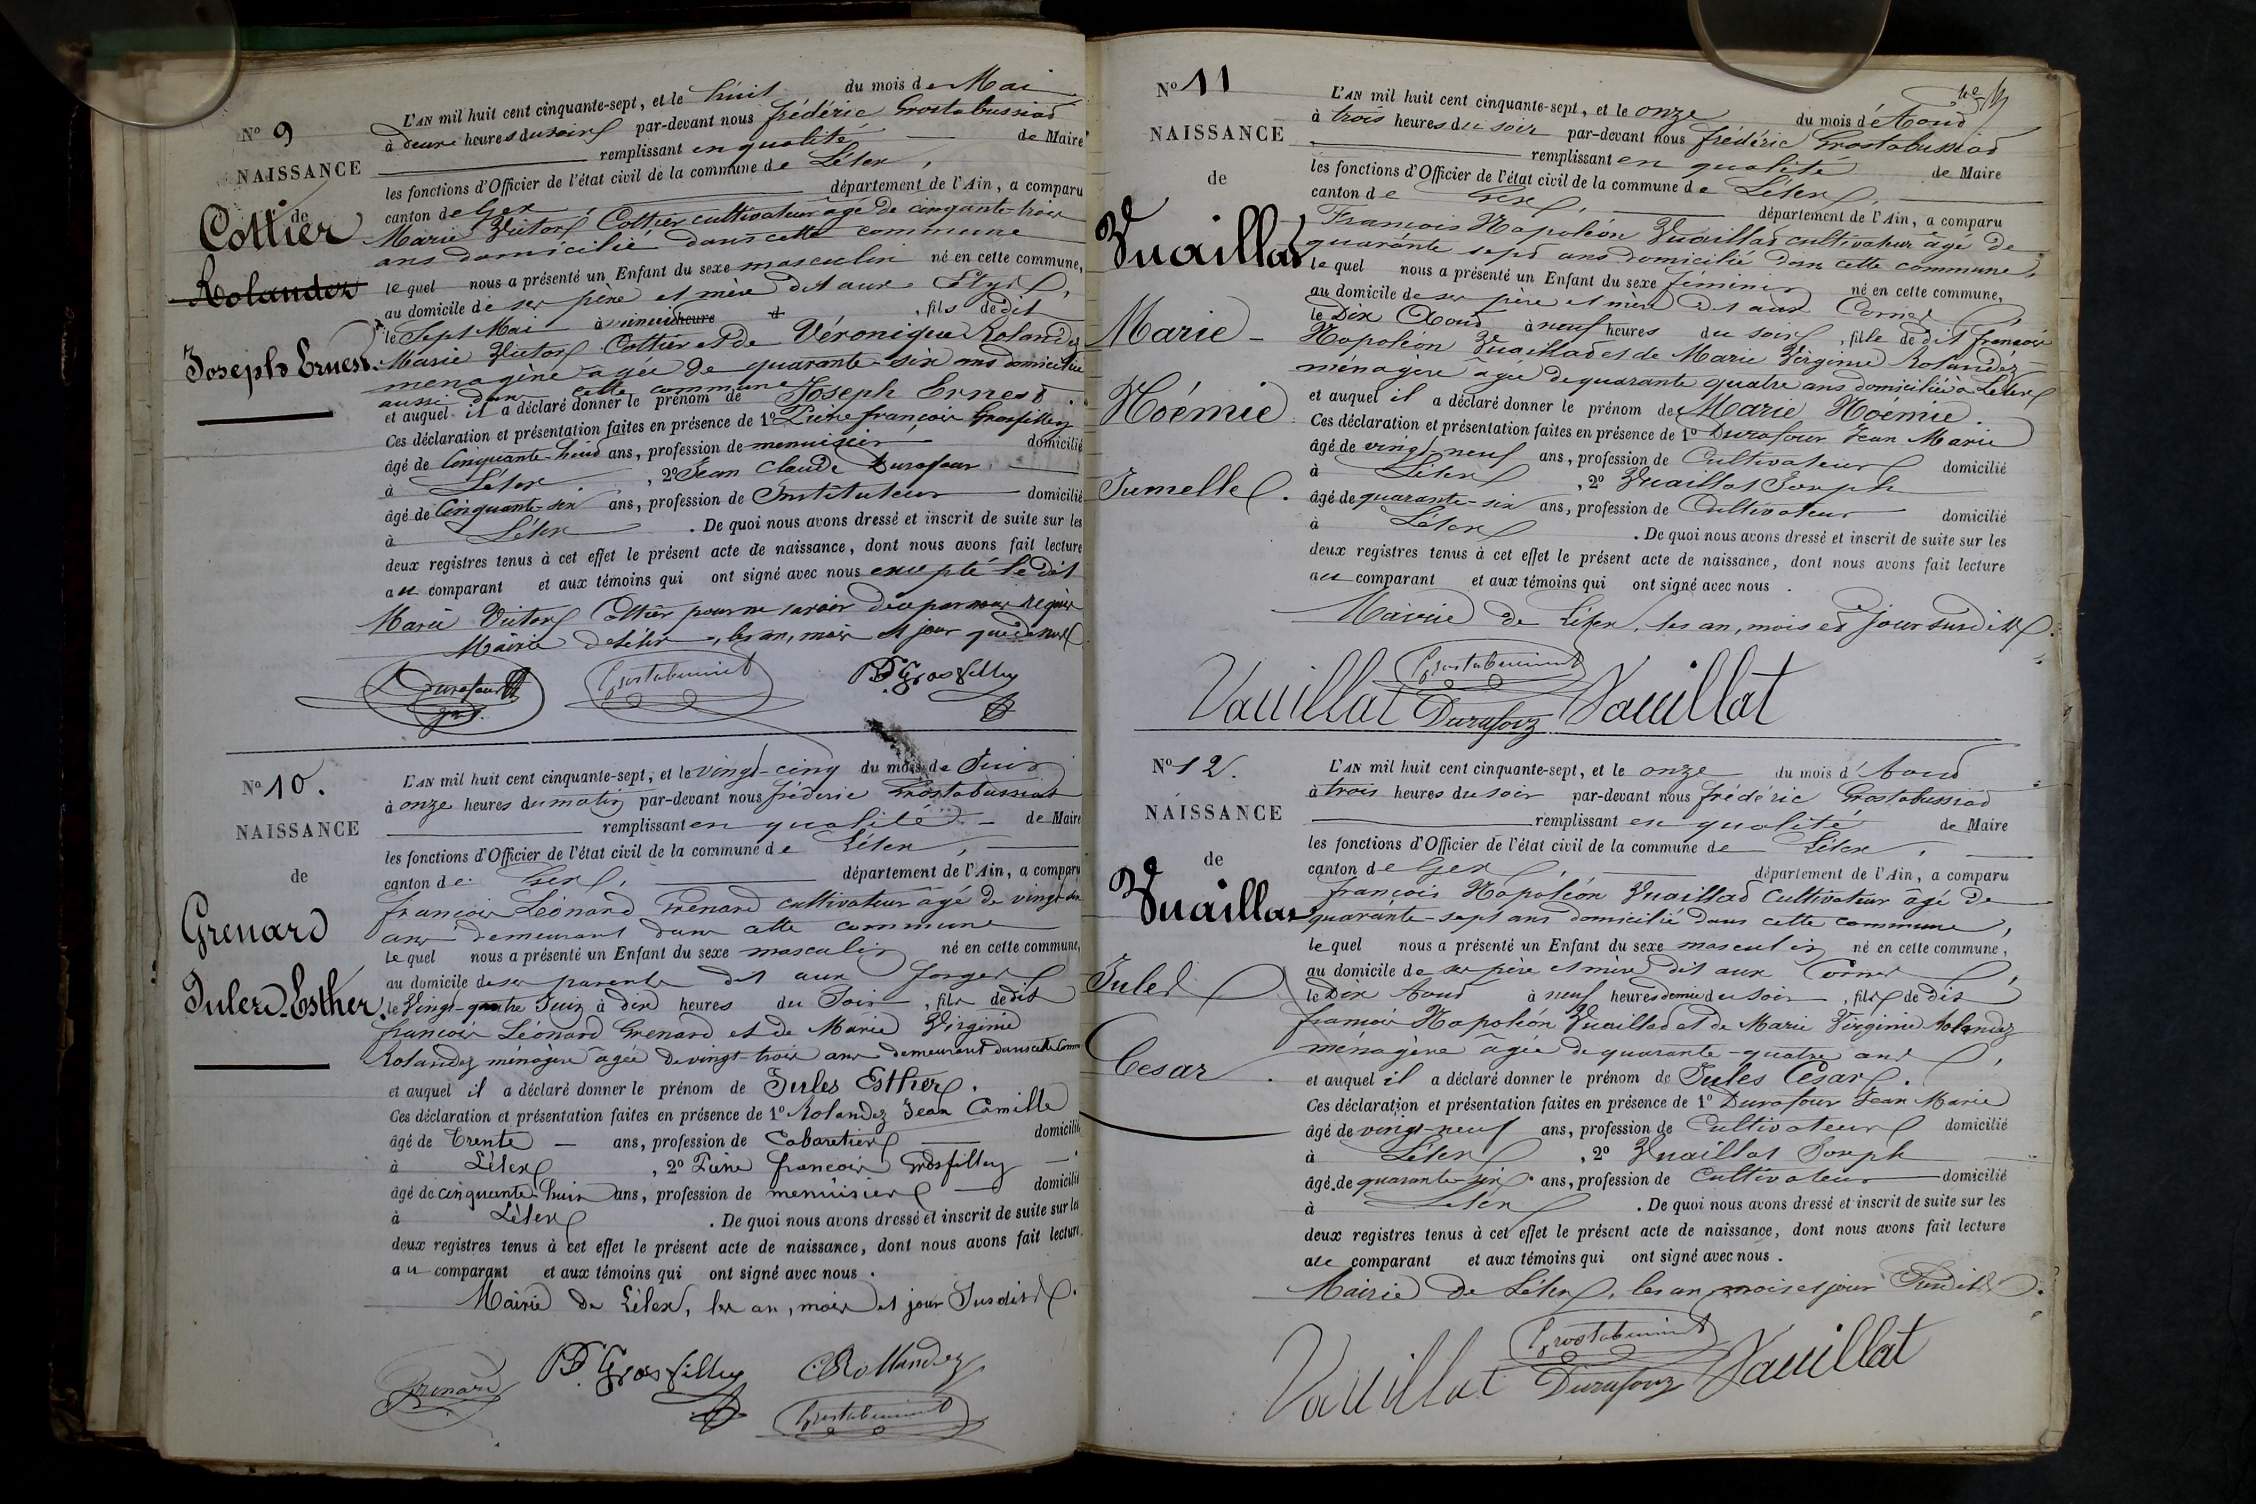 No 9
NAISSANCE
de
Cottier
Rolandez
Joseph Ernest.
L'AN mil huit cent cinquante-sept, et le huit du mois de Mai
à deux heures du soir par-devant nous frédéric Grostabussiat
remplissant en qualité de Maire
les fonctions d'Officier de l'état civil de la commune de Lélex,
canton de Gex, département de l'Ain, a comparu
Marie Victor Cottier cultivateur âgé de cinquante-trois
ans domicilié dans cette commune
lequel nous a présenté un Enfant du sexe masculin né en cette commune,
au domicile de ses père et mère dit aux
le Sept Mai à heure , fils dedit
Marie Victor Cottier et de Véronique Rolandez
ménagère âgée de quarante-six ans domiciliée
aussi dans cette commune
et auquel il a déclaré donner le prénom de Joseph Ernest.
Ces déclaration et présentation faites en présence de 1o Pierre françois Grosfilley
âgé de Cinquante-huit ans, profession de menuisier domicilié
à Lélex , 2o Jean Claude Durafour
âgé de Cinquante-six ans, profession de Instituteur domicilié
à Lélex . De quoi nous avons dressé et inscrit de suite sur les
deux registres tenus à cet effet le présent acte de naissance, dont nous avons fait lecture
au comparant et aux témoins qui ont signé avec nous excepté le dit
Marie Victor Cottier pour ne savoir de ce par nous requis
Mairie de Lélex, les an, mois et jour que dessus
Durafour
Grostabussiat
PF Grosfilley
No 10.
NAISSANCE
de
Grenard
Jules-Esther.
L'AN mil huit cent cinquante-sept, et le vingt-cinq du mois de Juin
à onze heures du matin par-devant nous frédéric Grostabussiat
remplissant en qualité de Maire
les fonctions d'Officier de l'état civil de la commune de Lélex,
canton de Gex, département de l'Ain, a comparu
françois Léonard Grenard cultivateur âgé de vingt-six
ans demeurant dans cette commune
lequel nous a présenté un Enfant du sexe masculin né en cette commune,
au domicile de ses parents dit aux forges
le Vingt-quatre Juin à dix heures du Soir, fils dedit
françois Léonard Grenard et de Marie Virginie
Rolandez ménagère âgée de vingt-trois ans demeurant dans cette Comm
et auquel il a déclaré donner le prénom de Jules Esther.
Ces déclaration et présentation faites en présence de 1o Rolandez Jean Camille
âgé de Trente ans, profession de Cabaretier domicilié
à Lélex , 2o Pierre françois Grosfilley
âgé de cinquante-huit ans, profession de menuisier domicilié
à Lélex . De quoi nous avons dressé et inscrit de suite sur les
deux registres tenus à cet effet le présent acte de naissance, dont nous avons fait lecture
au comparant et aux témoins qui ont signé avec nous.
Mairie de Lélex, les an, mois et jour Susdits.
Grenard
PF Grosfilley
CRollandez
Grostabussiat
No 11
NAISSANCE
de
Vuaillat
Marie
Noémie
Jumelle.
L'AN mil huit cent cinquante-sept, et le onze du mois d'Aout
à trois heures du soir par-devant nous frédéric Grostabussiat
remplissant en qualité de Maire
les fonctions d'Officier de l'état civil de la commune de Lélex,
canton de Gex, département de l'Ain, a comparu
François Napoléon Vuaillat cultivateur âgé de
quarante sept ans domicilié dans cette commune,
lequel nous a présenté un Enfant du sexe féminin né en cette commune,
au domicile de ses père et mère dit aux Cornes
le Dix Aout à neuf heures du soir, fille de dit françois
Napoléon Vuaillat et de Marie Virginie Rolandez
ménagère âgée de quarante quatre ans domiciliée à Lélex
et auquel il a déclaré donner le prénom de Marie Noémie.
Ces déclaration et présentation faites en présence de 1o Durafour Jean Marie
âgé de vingt-neuf ans, profession de Cultivateur domicilié
à Lélex , 2o Vuaillat Joseph
âgé de quarante-six ans, profession de Cultivateur domicilié
à Lélex . De quoi nous avons dressé et inscrit de suite sur les
deux registres tenus à cet effet le présent acte de naissance, dont nous avons fait lecture
au comparant et aux témoins qui ont signé avec nous.
Mairie de Lélex, les an, mois et jour susdits.
Grostabussiat
Vauillat Durafour Vauillat
No 12.
NAISSANCE
de
Vuaillat
Jules
Cesar.
L'AN mil huit cent cinquante-sept, et le onze du mois d'Aout
à trois heures du soir par-devant nous frédéric Grostabussiat
remplissant en qualité de Maire
les fonctions d'Officier de l'état civil de la commune de Lélex,
canton de Gex, département de l'Ain, a comparu
françois Napoléon Vuaillat Cultivateur âgé de
quarante-sept ans domicilié dans cette commune,
lequel nous a présenté un Enfant du sexe masculin né en cette commune,
au domicile de ses père et mère dit aux Cornes,
le Dix Aout à neuf heures demie du soir, fils de dit
françois Napoléon Vuaillat et de Marie Virginie Rolandez
ménagère âgée de quarante-quatre ans,
et auquel il a déclaré donner le prénom de Jules César.
Ces déclaration et présentation faites en présence de 1o Durafour Jean Marie
âgé de vingt-neuf ans, profession de Cultivateur domicilié
à Lélex , 2o Vuaillat Joseph
âgé de quarante-six ans, profession de Cultivateur domicilié
à Lélex . De quoi nous avons dressé et inscrit de suite sur les
deux registres tenus à cet effet le présent acte de naissance, dont nous avons fait lecture
au comparant et aux témoins qui ont signé avec nous.
Mairie de Lélex, les an, mois et jour Susdits.
Grostabussiat
Vauillat Durafour Vauillat